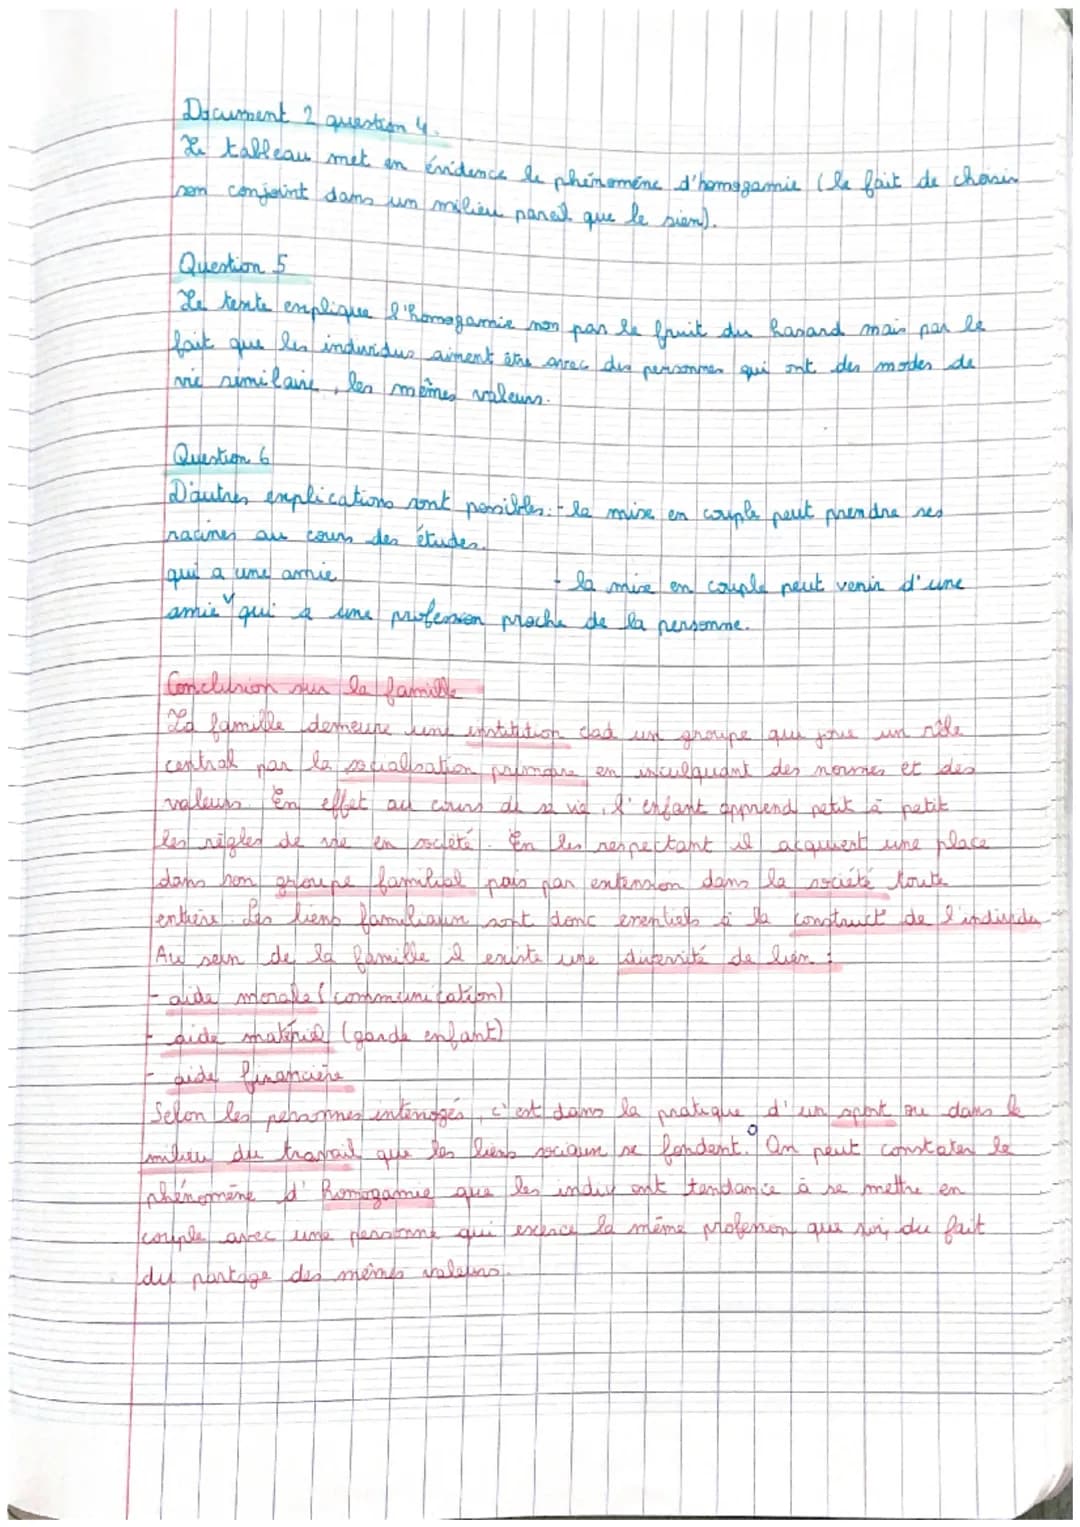 Document 2 question 4.
Le tableau met en évidence le phénomène d'homogamie (le fait de choisir
son conjoint dans un milieu pareil que le sien).
Question 5
Le texte explique l'homogamie non par le fruit du hasard mais par le
fait que les individus aiment être avec des personnes qui ont des modes de
vie similaire, les mêmes valeurs.
Question 6
D'autres explications sont possibles : - la mise en couple peut prendre ses
racines au cours des études.
qui a une amie
- la mise en couple peut venir d'une
amie qui a une profession proche de la personne.
Conclusion sur la famille
La famille demeure une institution càd un groupe qui joue un rôle
central par la socialisation primaire en inculquant des normes et des
valeurs. En effet au cours de sa vie, l'enfant apprend petit à petit
les règles de vie en société. En les respectant il acquiert une place
dans son groupe familial puis par extension dans la société toute
entière. Les liens familiaux sont donc essentiels à la construct° de l'individu
Au sein de la famille il existe une diversité de lien :
- aide morale (communication)
- aide matériel (garde enfant)
- aide financière
Selon les personnes interrogés, c'est dans la pratique d'un sport ou dans le
milieu du travail que les liens sociaux se fondent. On peut constater le
phénomène d'homogamie que les indiv ont tendance à se mettre en
couple avec une personne qui exerce la même profession que soi, du fait
du partage des mêmes valeurs.